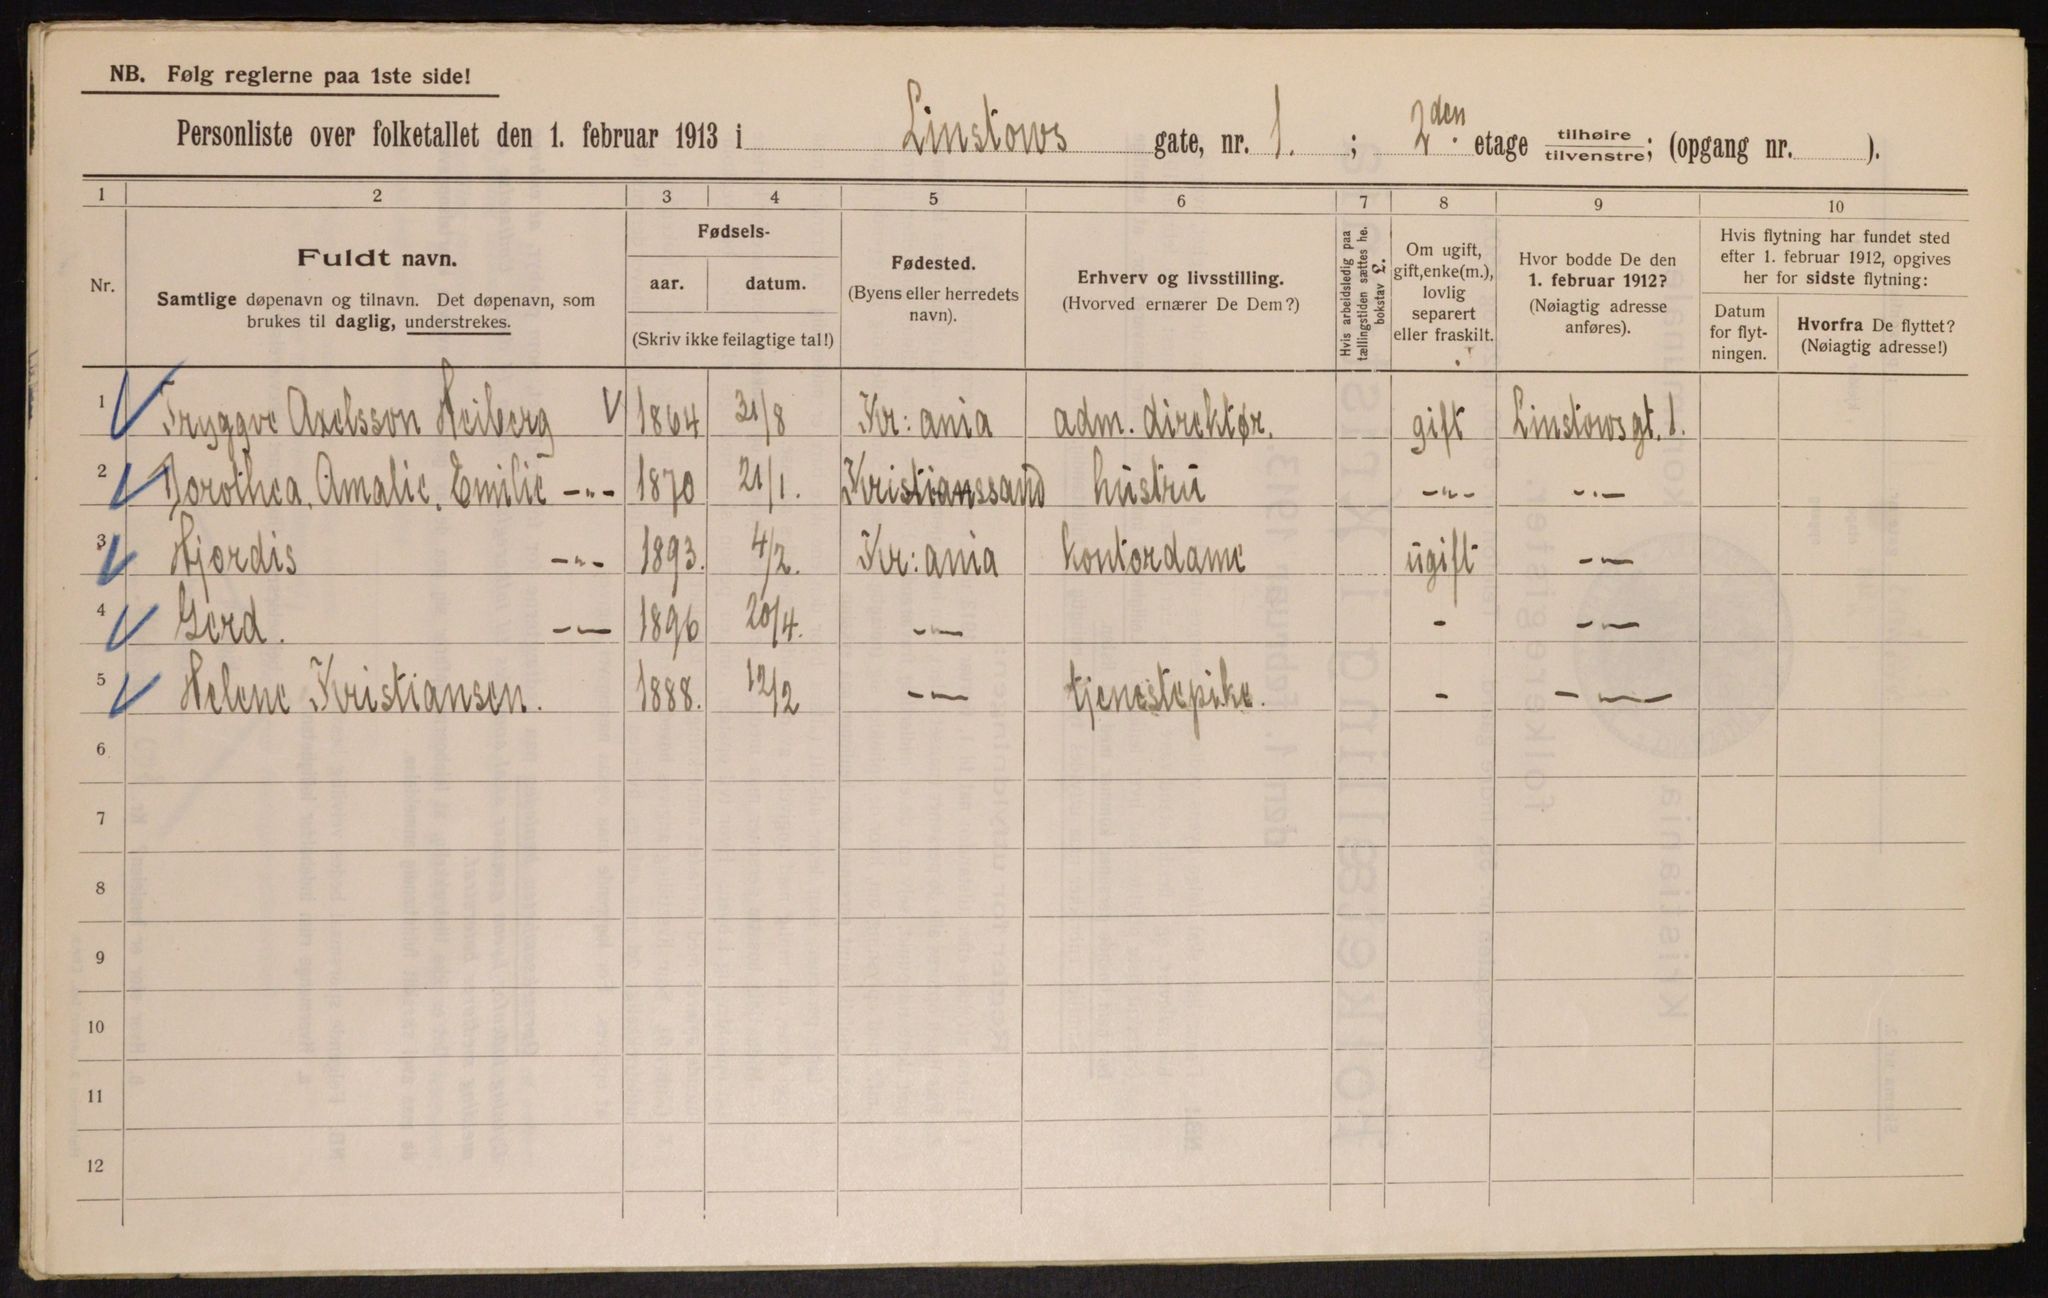 NB. Følg reglerne paa 1ste side!
Personliste over folketallet den 1. februar 1913 i Linstows gate, nr. 1. ; 2den. etage tilhøire tilvenstre; (opgang nr. ).
1 2 3 4 5 6 7 8 9 10
Nr.
Fuldt navn.
Samtlige døpenavn og tilnavn. Det døpenavn, som
brukes til daglig, understrekes.
Fødsels-
aar. datum.
(Skriv ikke feilagtige tal!)
Fødested.
(Byens eller herredets
navn).
Erhverv og livsstilling.
(Hvorved ernærer De Dem?)
Hvis arbeidsledig paa
tællingstiden sættes he.
bokstav L.
Om ugift,
gift, enke(m.),
lovlig
separert
eller fraskilt.
Hvor bodde De den
1. februar 1912?
(Nøiagtig adresse
anføres).
Hvis flytning har fundet sted
efter 1. februar 1912, opgives
her for sidste flytning:
Datum
for flyt-
ningen.
Hvorfra De flyttet?
(Nøiagtig adresse!)
1 Tryggve Axelsson Heiberg V 1864 31/8 Kr: ania adm. direktør. gift Linstowsgt. 1.
2 Dorothea, Amalie, Emilie -"- 1870 21/1. Kristianssand hustru -"- -"-
3 Hjørdis -"- 1893. 4/2. Kr: ania kontordame ugift - -
4 Gerd. - - 1896 20/4. - - - - -
5 Helene Kristiansen. 1888. 12/2 - - tjenestepike. - - -
6
7
8
9
10
11
12